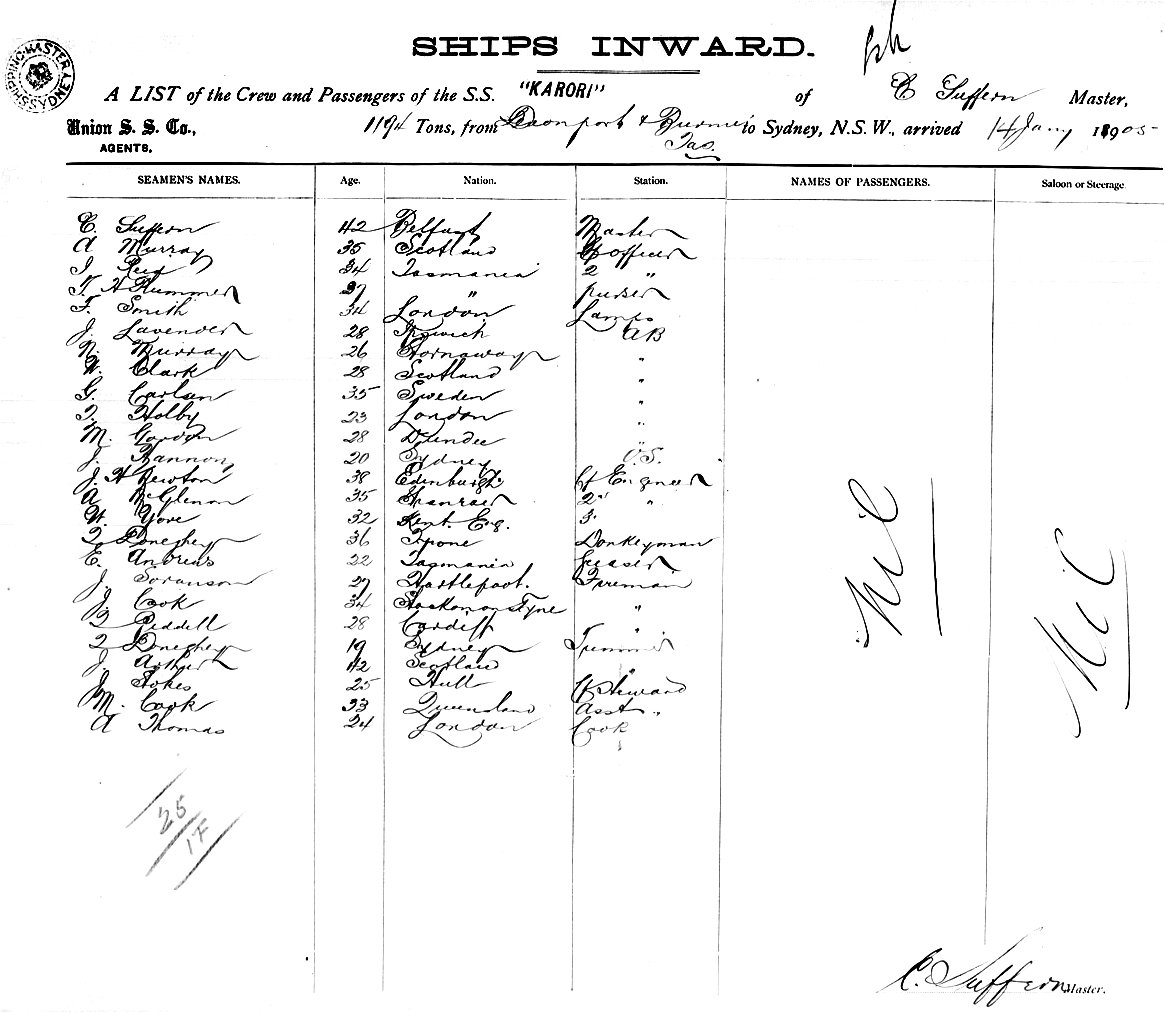 SHIPPING MASTER SYDNEY
SHIPS INWARD.
A LIST of the Crew and Passengers of the S.S. "KARORI" of C Suffern Master,
Union S. S. Co., 1194 Tons, from Devonport & Burnie to Sydney, N.S.W., arrived 14 Jany 1905
Tas.
AGENTS.
SEAMEN'S NAMES. Age. Nation. Station. NAMES OF PASSENGERS. Saloon or Steerage
C. Suffern 42 Belfast Master
A Murray 35 Scotland officer
J. Reid 34 Tasmania 2 "
T. H Plummer 37 " purser
F. Smith 34 London Lamps
J. Lavender 28 Ipswich AB
N. Murray 26 Stornaway "
W. Clark 28 Scotland "
G. Carlsen 35 Sweden "
T. Holby 23 London "
M. Gordon 28 Dundee "
J. Bannon 20 Sydney O.S.
J. H Newton 38 Edinburgh Cf Engineer
A McGlenon 35 Stanraer 2" "
W. Yove 32 Kent. Eng. 3
36 Donkeyman
E. Andrews 22 Tasmania Greaser
J. Soranson 27 Hartlepool. Fireman
J. Cook 34 Stockon on Tyne "
Peddell 28 Cardiff "
19 Sydney Trimmer
J. Arthur 42 Scotland "
J. Stokes 25 Hull Cf Steward
M. Cook 33 Queensland Asst "
A Thomas 24 London Cook
Nil
Nil
25
C. Suffern Master.